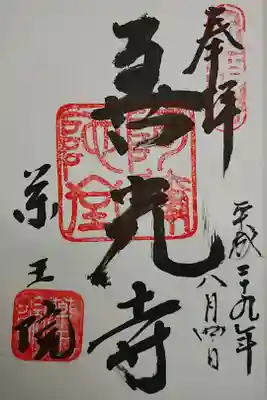 奉拝
平成二十九年
八月四日
善光寺
薬王院